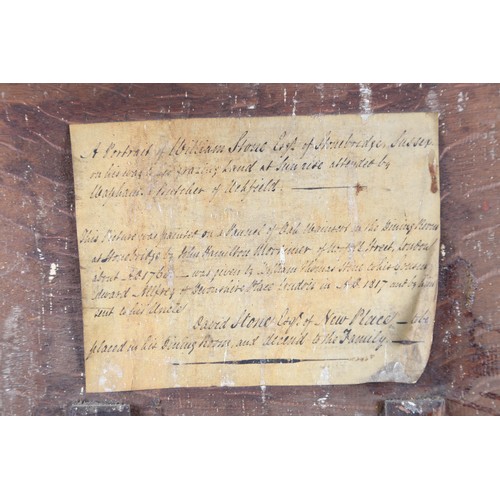 A Portrait of William Stone Esqr. of Stonebridge, Sussex
on his way to his grazing Land at Sun rise attended by
Butcher of Uckfield.
This Picture was painted on a Pannel of Oak Wainscot in the Dining Room
at Stonebridge by John Hamilton Mortimer of Street, London
about A.D. 1760 — was given by William Thomas Stone to his
Edward of Devonshire Place London in A.D. 1817 and by him
sent to his Uncle
David Stone Esqr. of New Place, — to be
placed in his Dining Room, and decend to the Family. —